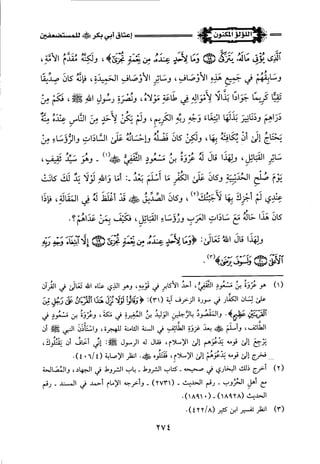 اللؤلؤ المكنون
إعتاق أبي بكر ﷺ للمستضعفين
ٱلَّذِى يُؤْتِى مَالَهُۥ يَتَزَكَّىٰ ۝ وَمَا لِأَحَدٍ عِندَهُۥ مِن نِّعْمَةٍ تُجْزَىٰٓ﴾، ولكنَّهُ مُقدَّمُ الأُمَّةِ،
وسَابِقُهُم في جَميعِ هذه الأوْصَافِ، وسَائِرِ الأوْصَافِ الحَمِيدَةِ، فإنَّهُ كانَ صِدِّيقًا
تَقِيًّا كَرِيمًا جَوادًا بَذَّالًا لأَمْوَالِهِ في طَاعَةِ مَوْلَاهُ، ونُصْرَةِ رَسُولِ اللهِ ﷺ، فكَم مِنْ
دَرَاهِمَ ودَنَانِيرَ بَذَلَهَا ابْتِغَاءَ وَجْهِ رَبِّهِ الكَرِيمِ، ولَمْ يَكُنْ لِأَحَدٍ مِنَ النَّاسِ عِنْدَهُ مِنَّةٌ
يَحْتَاجُ إلى أنْ يُكَافِئَهُ بهَا، ولَكِنْ كَانَ فَضْلُهُ وإحْسَانُهُ عَلَى السَّادَاتِ والرُّؤَسَاءِ مِنْ
سَائِرِ القَبَائِلِ، ولهَذَا قَالَ لَهُ عُرْوَةُ بنُ مَسْعُودٍ الثَّقَفِيُّ(١) - وهُو سَيِّدُ ثَقِيفَ،
يَوْمَ صُلْحِ الحُدَيْبِيَةِ وكَانَ عَلَى الكُفْرِ مَا أسْلَمَ بَعْدُ -: أمَا واللهِ لَوْلَا يَدٌ لَكَ كَانَتْ
عِنْدِي لَمْ أَجْزِكَ بِهَا لَأَجَبْتُكَ(٢)، وكَانَ الصِّدِّيقُ ﷺ قَدْ أغْلَظَ لَهُ في المَقَالَةِ، فَإِذَا
كَانَ هَذَا حَالُهُ مَعَ سَادَاتِ العَرَبِ ورُؤَسَاءِ القَبَائِلِ، فكَيْفَ بِمَنْ عَدَاهُمْ؟.
ولهَذَا قَالَ اللهُ تَعَالَى: ﴿وَمَا لِأَحَدٍ عِندَهُۥ مِن نِّعْمَةٍ تُجْزَىٰٓ ۝ إِلَّا ٱبْتِغَآءَ وَجْهِ رَبِّهِ
ٱلْأَعْلَىٰ ۝ وَلَسَوْفَ يَرْضَىٰ﴾(٣).
(١) هو عُرْوَةُ بنُ مَسْعُودٍ الثَّقَفِيُّ، أحدُ الأكَابِرِ في قَومِهِ، وهو الذي عَنَاهُ الله تَعَالَى في القُرآنِ
عَلى لِسَانِ الكفَّارِ في سورة الزخرف آية (٣١): ﴿وَقَالُوا۟ لَوْلَا نُزِّلَ هَٰذَا ٱلْقُرْءَانُ عَلَىٰ رَجُلٍ مِّنَ
ٱلْقَرْيَتَيْنِ عَظِيمٍ﴾، والمَقْصُودُ بالرَّجلينِ الوَليدُ بنُ المُغيرة في مَكَّةَ، وعُرْوَةُ بنُ مَسْعُودٍ في
الطَّائف، وأسلم ﷺ بعدَ غزوة الطَّائف في السنة الثامنة للهجرة، واسْتَأذَنَ النبي ﷺ أن
يَرْجِعَ إلى قومِه يَدعُوهم إلى الإسْلامِ، فقال له الرسول ﷺ: إني أخَافُ أن يَقْتُلُوكَ،
فخرج إلى قومه يَدعُوهم إلى الإسْلامِ، فقتلوه ﷺ. انظر الإصابة (٤٠٦/٤).
(٢) أخرج ذلك البخاري في صحيحه - كتاب الشروط - باب الشروط في الجهاد، والمصالحة
مع أهل الحُرُوب - رقم الحديث (٢٧٣١) - وأخرجه الإمام أحمد في المسند - رقم
الحديث (١٨٩٢٨) - (١٨٩١٠).
(٣) انظر تفسير ابن كثير (٤٢٢/٨).
٢٧٤